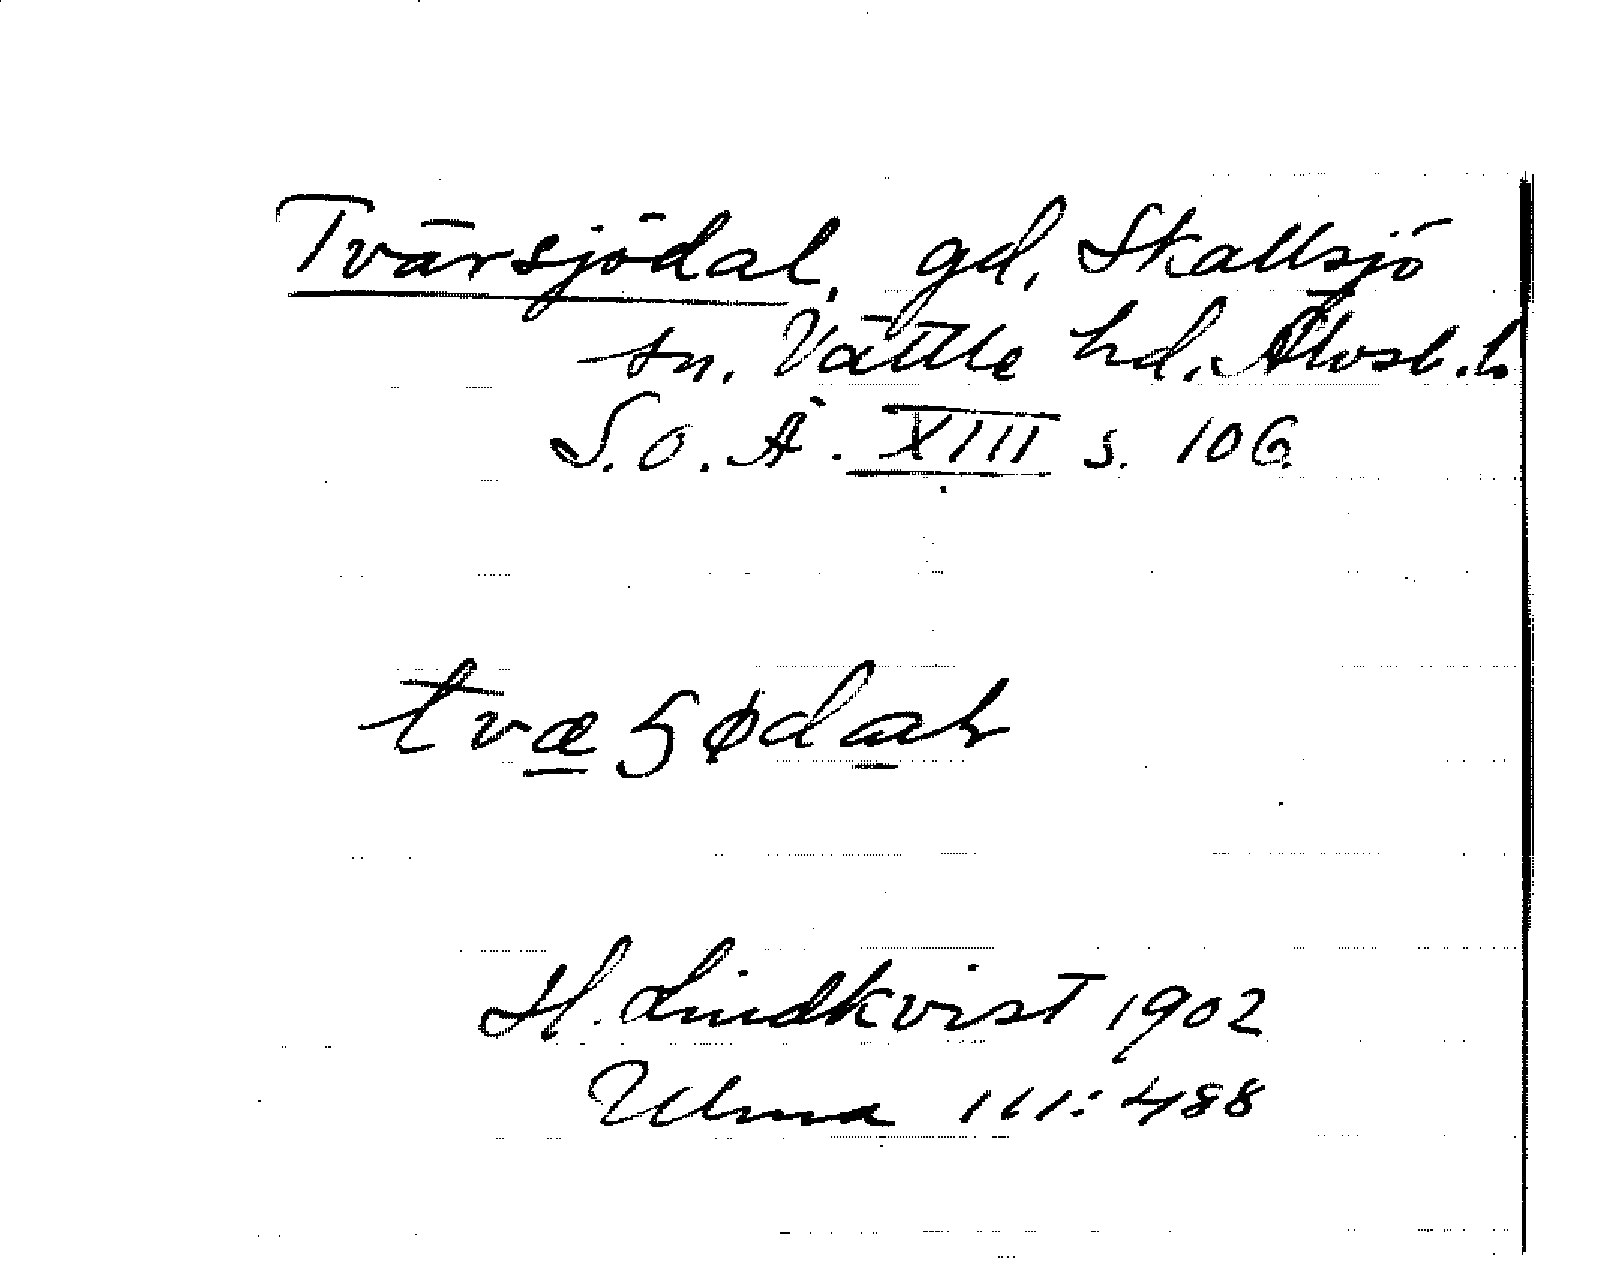 Tvärsjödal, gd, Skallsjö
sn. Vättle hd. Älvsb. l.
S.O.Ä. XIII s. 106
H. Lindkvist 1902
Ulma 111:488